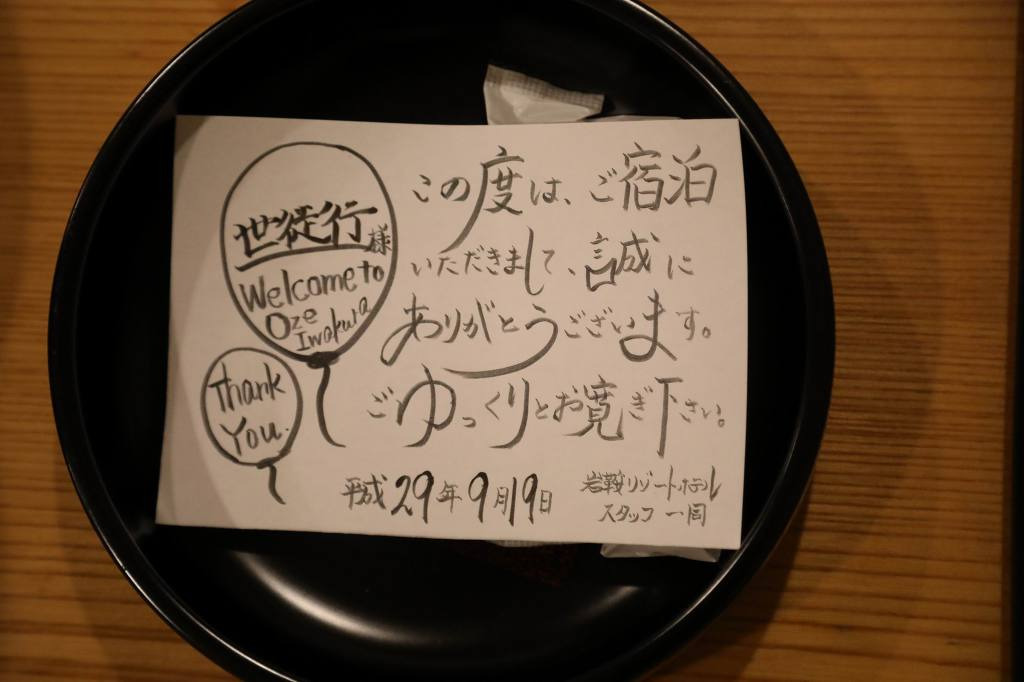 世徒行様
Welcome to
Oze
Iwakura
Thank
You.
この度は、ご宿泊
いただきまして、誠に
ありがとうございます。
ごゆっくりとお寛ぎ下さい。
平成29年9月19日
岩鞍リゾートホテル
スタッフ一同